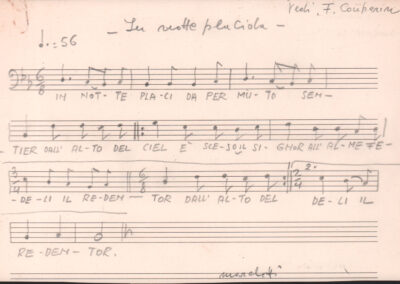 Vedi: F. Couperin
♩. = 56 - In notte placida -
6/8 IN NOT- TE PLA-CI DA PER MU-TO SEM-
TIER DALL' AL-TO DEL CIEL È SCE-SO IL SI-GNOR ALL' AL-ME FE-
3/4 6/8 2/4 2.
-DE-LI IL REDEM- TOR DALL' AL-TO DEL DE-LI IL
RE-DEN-TOR.